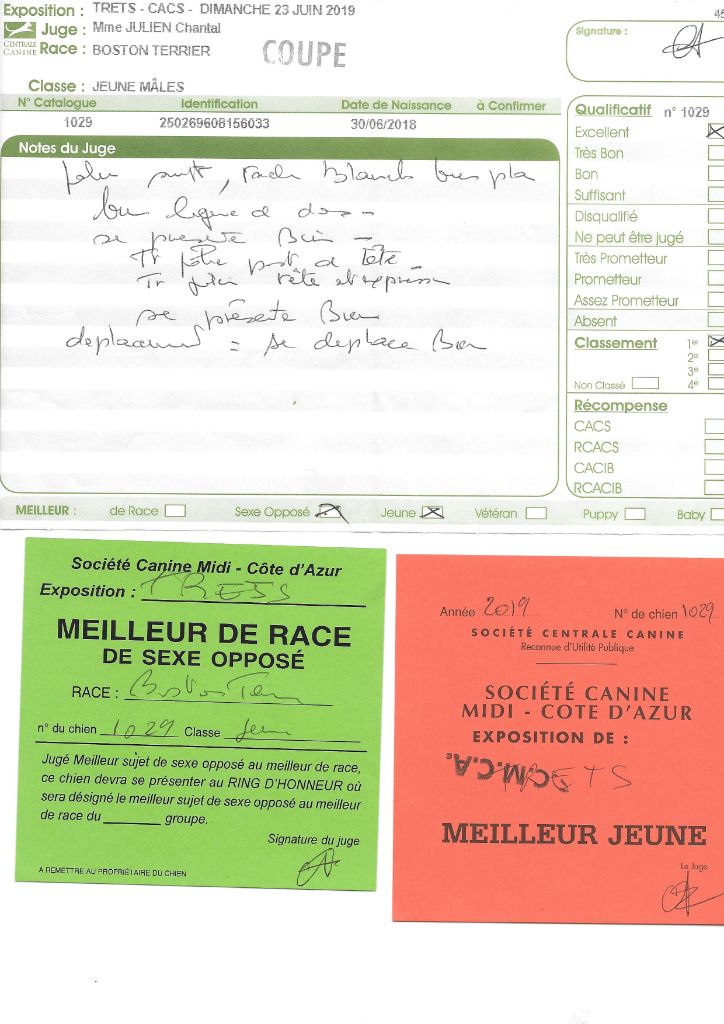 Exposition : TRETS - CACS - DIMANCHE 23 JUIN 2019
45
CENTRALE CANINE
Juge : Mme JULIEN Chantal
Race : BOSTON TERRIER
COUPE
Signature :
Classe : JEUNE MÂLES
N° Catalogue Identification Date de Naissance à Confirmer
1029 250269608156033 30/06/2018
Notes du Juge
Blanch
ligne de dos -
se présente Bien -
Tr de tête
Tr tête et expression
se présente Bien
deplacement = se deplace Bien
Qualificatif n° 1029
Excellent
Très Bon
Bon
Suffisant
Disqualifié
Ne peut être jugé
Très Prometteur
Prometteur
Assez Prometteur
Absent
Classement 1er
2e
3e
Non Classé 4e
Récompense
CACS
RCACS
CACIB
RCACIB
MEILLEUR : de Race Sexe Opposé Jeune Vétéran Puppy Baby
Société Canine Midi - Côte d'Azur
Exposition : TRETS
MEILLEUR DE RACE
DE SEXE OPPOSÉ
RACE : Boston Terr
n° du chien 1029 Classe Jeune
Jugé Meilleur sujet de sexe opposé au meilleur de race,
ce chien devra se présenter au RING D'HONNEUR où
sera désigné le meilleur sujet de sexe opposé au meilleur
de race du groupe.
Signature du juge
A REMETTRE AU PROPRIÉTAIRE DU CHIEN
Année 2019 N° de chien 1029
SOCIÉTÉ CENTRALE CANINE
Reconnue d'Utilité Publique
SOCIÉTÉ CANINE
MIDI - COTE D'AZUR
EXPOSITION DE :
S.C.M.C.A.
TRETS
MEILLEUR JEUNE
Le Juge